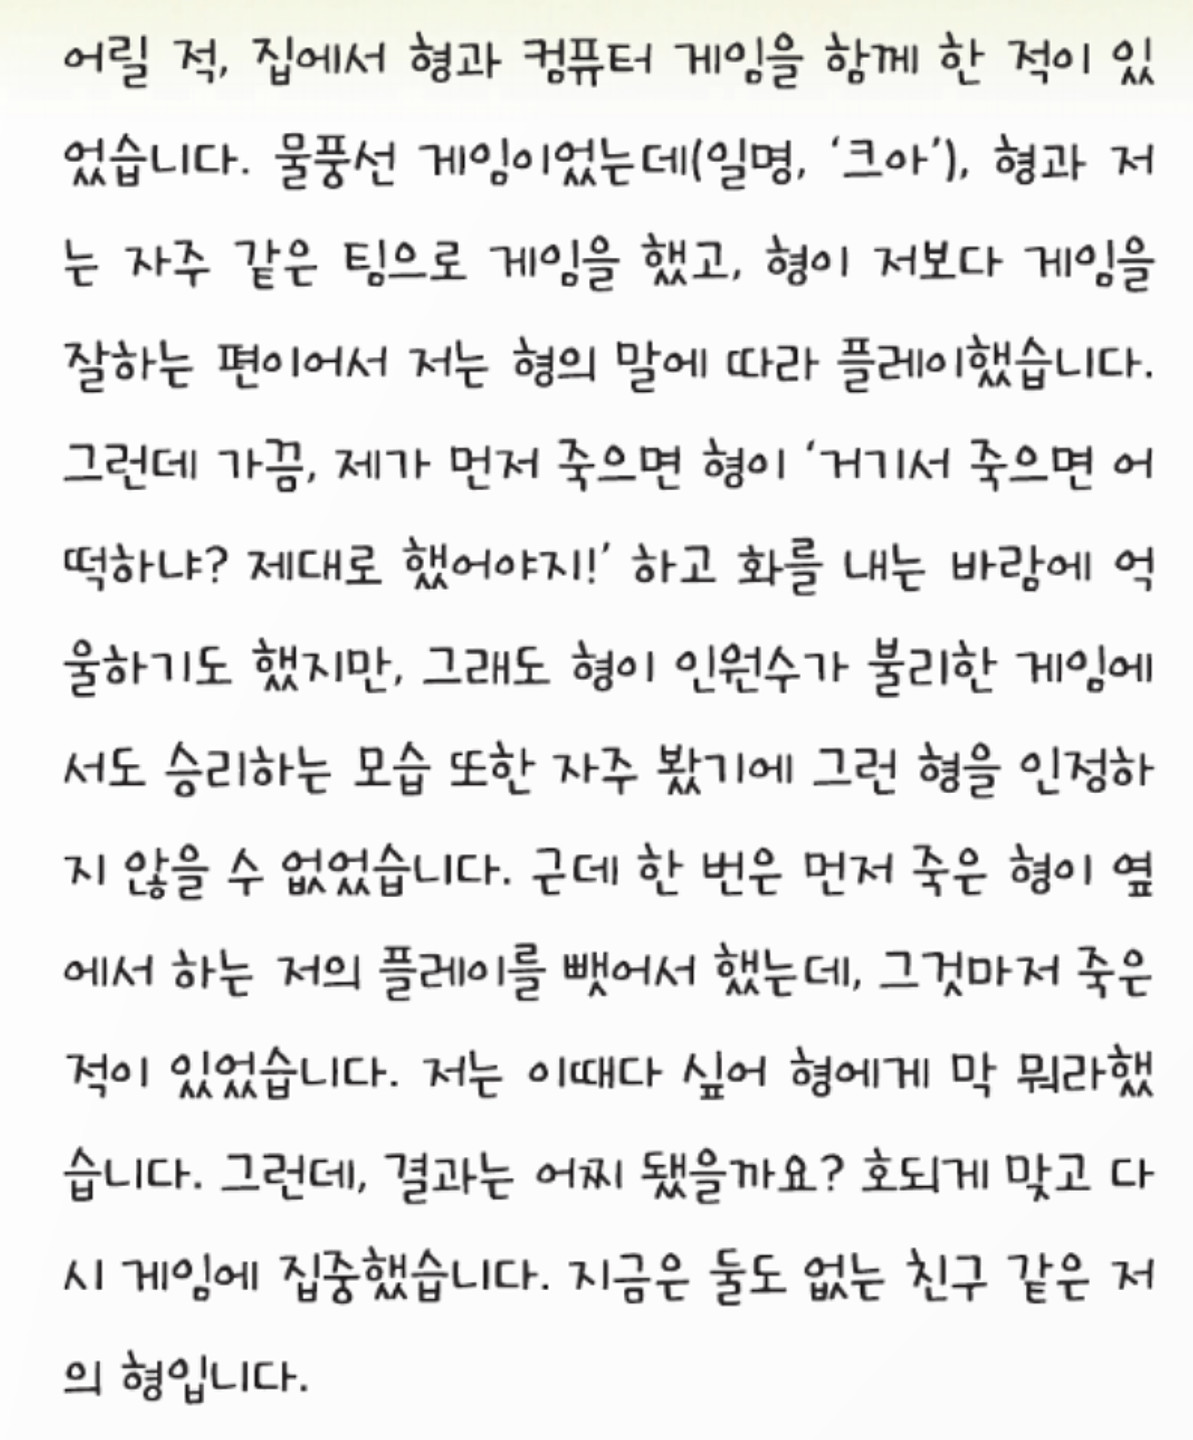 어릴 적, 집에서 형과 컴퓨터 게임을 함께 한 적이 있
었습니다. 물풍선 게임이었는데(일명, ‘크아’), 형과 저
는 자주 같은 팀으로 게임을 했고, 형이 저보다 게임을
잘하는 편이어서 저는 형의 말에 따라 플레이했습니다.
그런데 가끔, 제가 먼저 죽으면 형이 ‘거기서 죽으면 어
떡하냐? 제대로 했어야지!’ 하고 화를 내는 바람에 억
울하기도 했지만, 그래도 형이 인원수가 불리한 게임에
서도 승리하는 모습 또한 자주 봤기에 그런 형을 인정하
지 않을 수 없었습니다. 근데 한 번은 먼저 죽은 형이 옆
에서 하는 저의 플레이를 뺏어서 했는데, 그것마저 죽은
적이 있었습니다. 저는 이때다 싶어 형에게 막 뭐라했
습니다. 그런데, 결과는 어찌 됐을까요? 호되게 맞고 다
시 게임에 집중했습니다. 지금은 둘도 없는 친구 같은 저
의 형입니다.